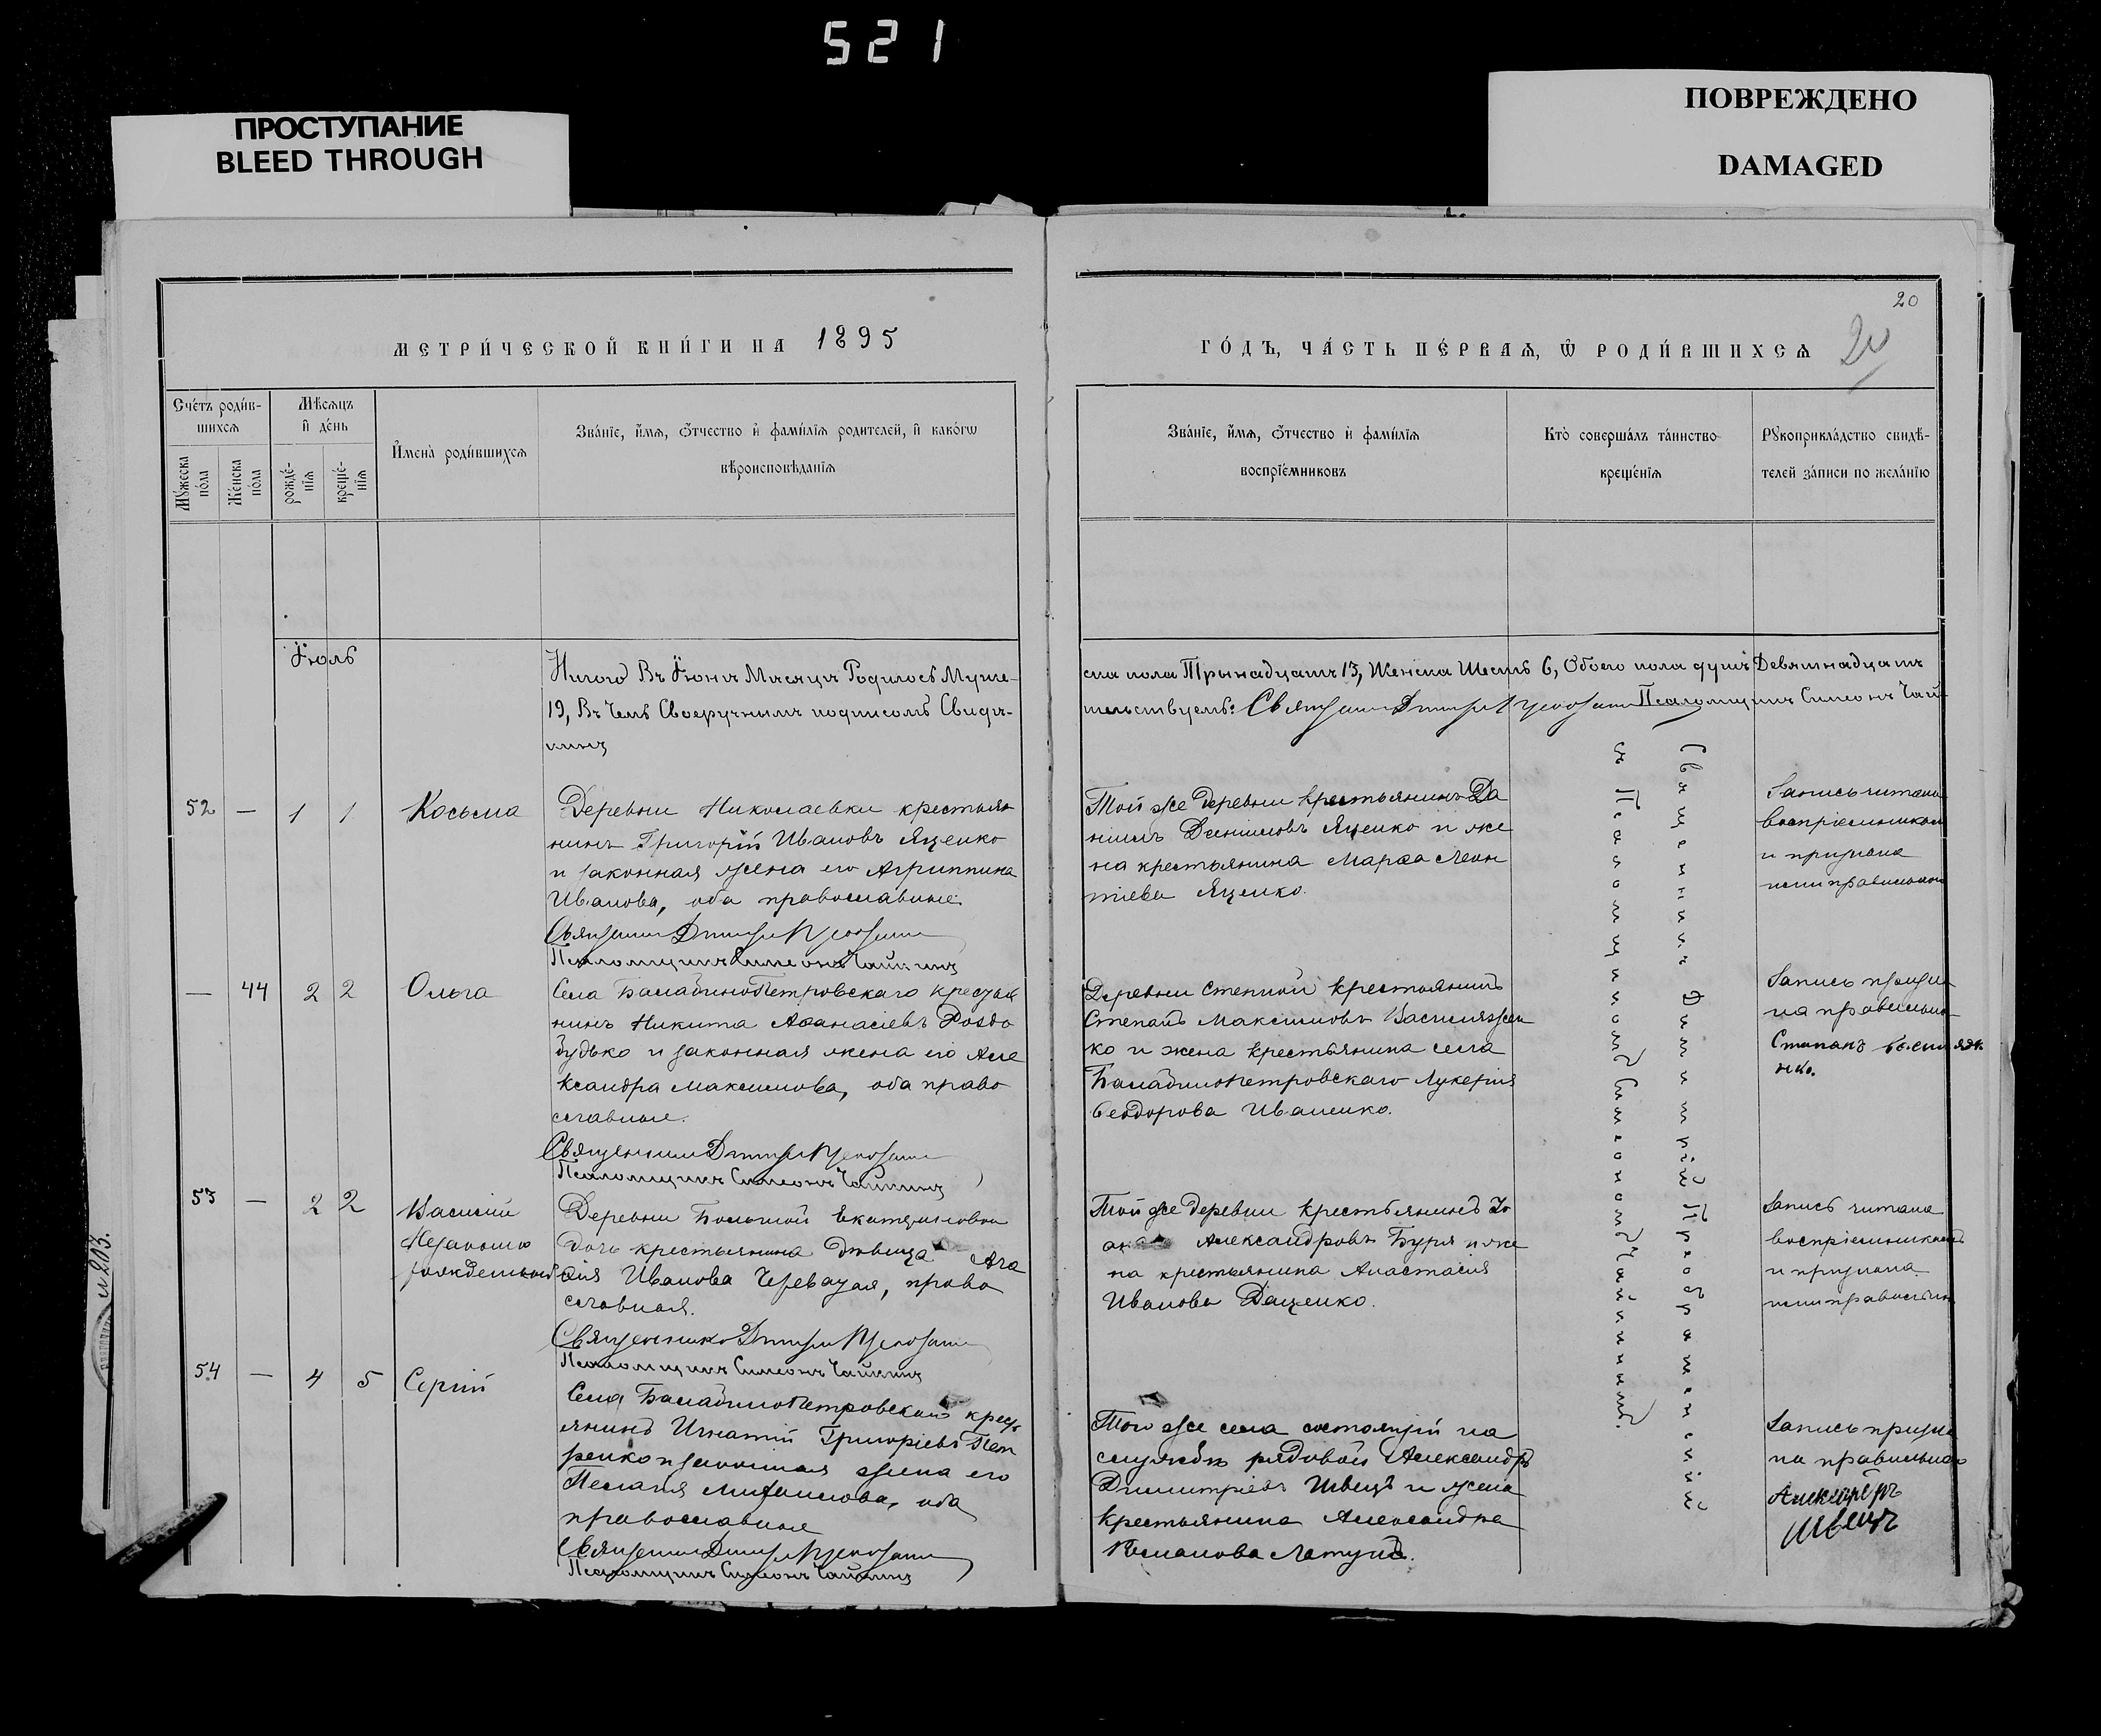 521
ПРОСТУПАНИЕ
BLEED THROUGH
ПОВРЕЖДЕНО
DAMAGED
20
МЕТРИ́ЧЕСКОЙ КНИ́ГИ НА 1895
ГО́ДЪ, ЧА́СТЬ ПЕ́РВАѦ, Ѽ РОДИ́ВШИХСѦ 20
Сче́тъ роди́в-
шихсѧ
Мꙋ́жеска
по́ла
Же́нска
по́ла
Мѣ́сѧцъ
и҆ де́нь
рожде́-
нїѧ
креще́-
нїѧ
И҆мена̀ роди́вшихсѧ
Зва́нїе, и҆́мѧ, ѻ҆́тчество и҆ фами́лїѧ родителей, и҆ како́гѡ
вѣроисповѣ́данїѧ
Зва́нїе, и҆́мѧ, ѻ҆́тчество и҆ фами́лїѧ
воспрїе́мниковъ
Кто̀ соверша́лъ та́инство
креще́нїѧ
Рꙋкоприкла́дство свидѣ́-
телей за́писи по жела́нїю
Іюль
Итого Въ Іюнѣ Мѣсяцѣ Родилось Муже-
19, Въ Чемъ Своеручнымъ подписомъ Свидѣ-
кинъ
ска пола Трынадцать 13, Женска Шесть 6, Обоего пола душъ Девятнадцать
тельствуемъ: Священникъ Димитрій Псаломщикъ Симеонъ Чай-
52 — 1 1 Косьма
Деревни Николаевки крестьян
нинъ Григорій Ивановъ Яценко
и законная жена его Агриппина
Иванова, оба православные.
Священникъ Димитрій
Псаломщикъ Симеонъ Чайкинъ
Той же деревни крестьянинъ Да
ніилъ Даниловъ Яценко и же
на крестьянина Марѳа Леон
тіева Яценко.
Запись читана
воспріемникам
и признана
ими правильною
— 44 2 2 Ольга
Села БалабиноПетровскаго крестья
нинъ Никита Аѳанасіевъ
будько и законная жена его Але
ксандра Максимова, оба право
славные.
Священникъ Димитрій
Псаломщикъ Симеонъ Чайкинъ
Деревни Степной крестьянинъ
Степанъ Максимовъ Василяжен
ко и жена крестьянина села
БалабиноПетровскаго Лукерія
Ѳеодорова Иваненко.
Запись призна
на правильно
Степанъ
нко.
53 — 2 2 Василій
Незаконно
рожденный
Деревни Большой Екатериновки
дочь крестьянина дѣвица Ага
ѳія Иванова Череватая, право
славная.
Священникъ Димитрій
Псаломщикъ Симеонъ Чайкинъ
Той же деревни крестьянинъ Іо
Александровъ Буря и же
на крестьянина Анастасія
Иванова Даценко.
Запись читана
воспріемникамъ
и признана
ими правильно
54 — 4 5 Сергій
Села БалабиноПетровскаго крест
янинъ Игнатій Григоріевъ Пет
ренко и законная жена его
Пелагія Михаилова, оба
православные
Священникъ Димитрій
Псаломщикъ Симеонъ Чайкинъ
Того же села состоящій на
службѣ рядовой Александръ
Димитріевъ Швецъ и жена
крестьянина Александра
Романова
Запись призна
на правильно
Александръ
Швецъ
Священникъ Димитрій Преображенскій
и Псаломщикъ Симеонъ Чайкинъ.
№ 203.